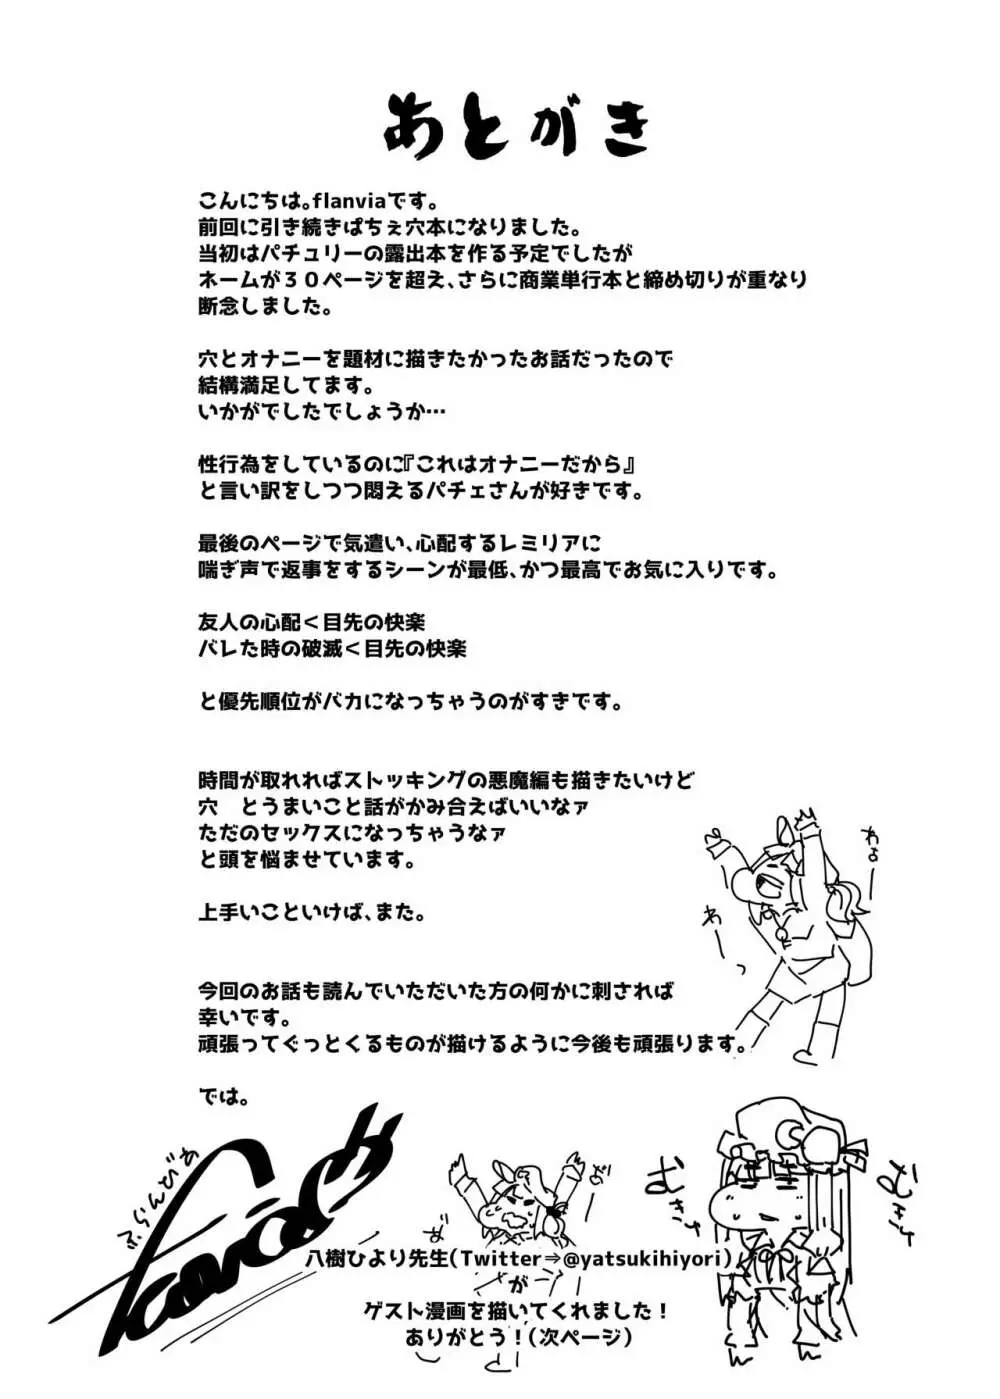 あとがき
こんにちは。flanviaです。
前回に引き続きぱちぇ穴本になりました。
当初はパチュリーの露出本を作る予定でしたが
ネームが３０ページを超え、さらに商業単行本と締め切りが重なり
断念しました。
穴とオナニーを題材に描きたかったお話だったので
結構満足してます。
いかがでしたでしょうか…
性行為をしているのに『これはオナニーだから』
と言い訳をしつつ悶えるパチェさんが好きです。
最後のページで気遣い、心配するレミリアに
喘ぎ声で返事をするシーンが最低、かつ最高でお気に入りです。
友人の心配＜目先の快楽
バレた時の破滅＜目先の快楽
と優先順位がバカになっちゃうのがすきです。
時間が取れればストッキングの悪魔編も描きたいけど
穴　とうまいこと話がかみ合えばいいなァ
ただのセックスになっちゃうなァ
と頭を悩ませています。
上手いこといけば、また。
今回のお話も読んでいただいた方の何かに刺されば
幸いです。
頑張ってぐっとくるものが描けるように今後も頑張ります。
では。
わー
わーっ
ふらんびあ
むきゅ
むきゅ
八樹ひより先生（Twitter⇒@yatsukihiyori）
が
ゲスト漫画を描いてくれました！
ありがとう！（次ページ）